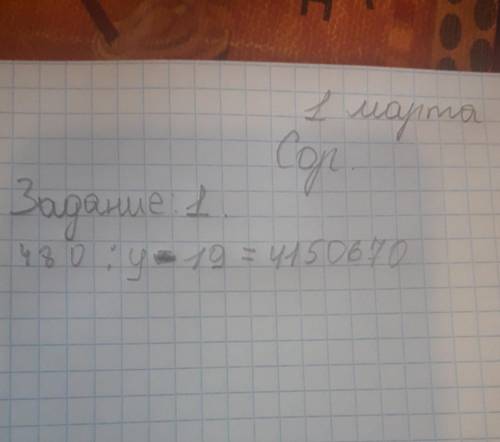 1 марта
Сор.
Задание 1.
480 : y - 19 = 4150670